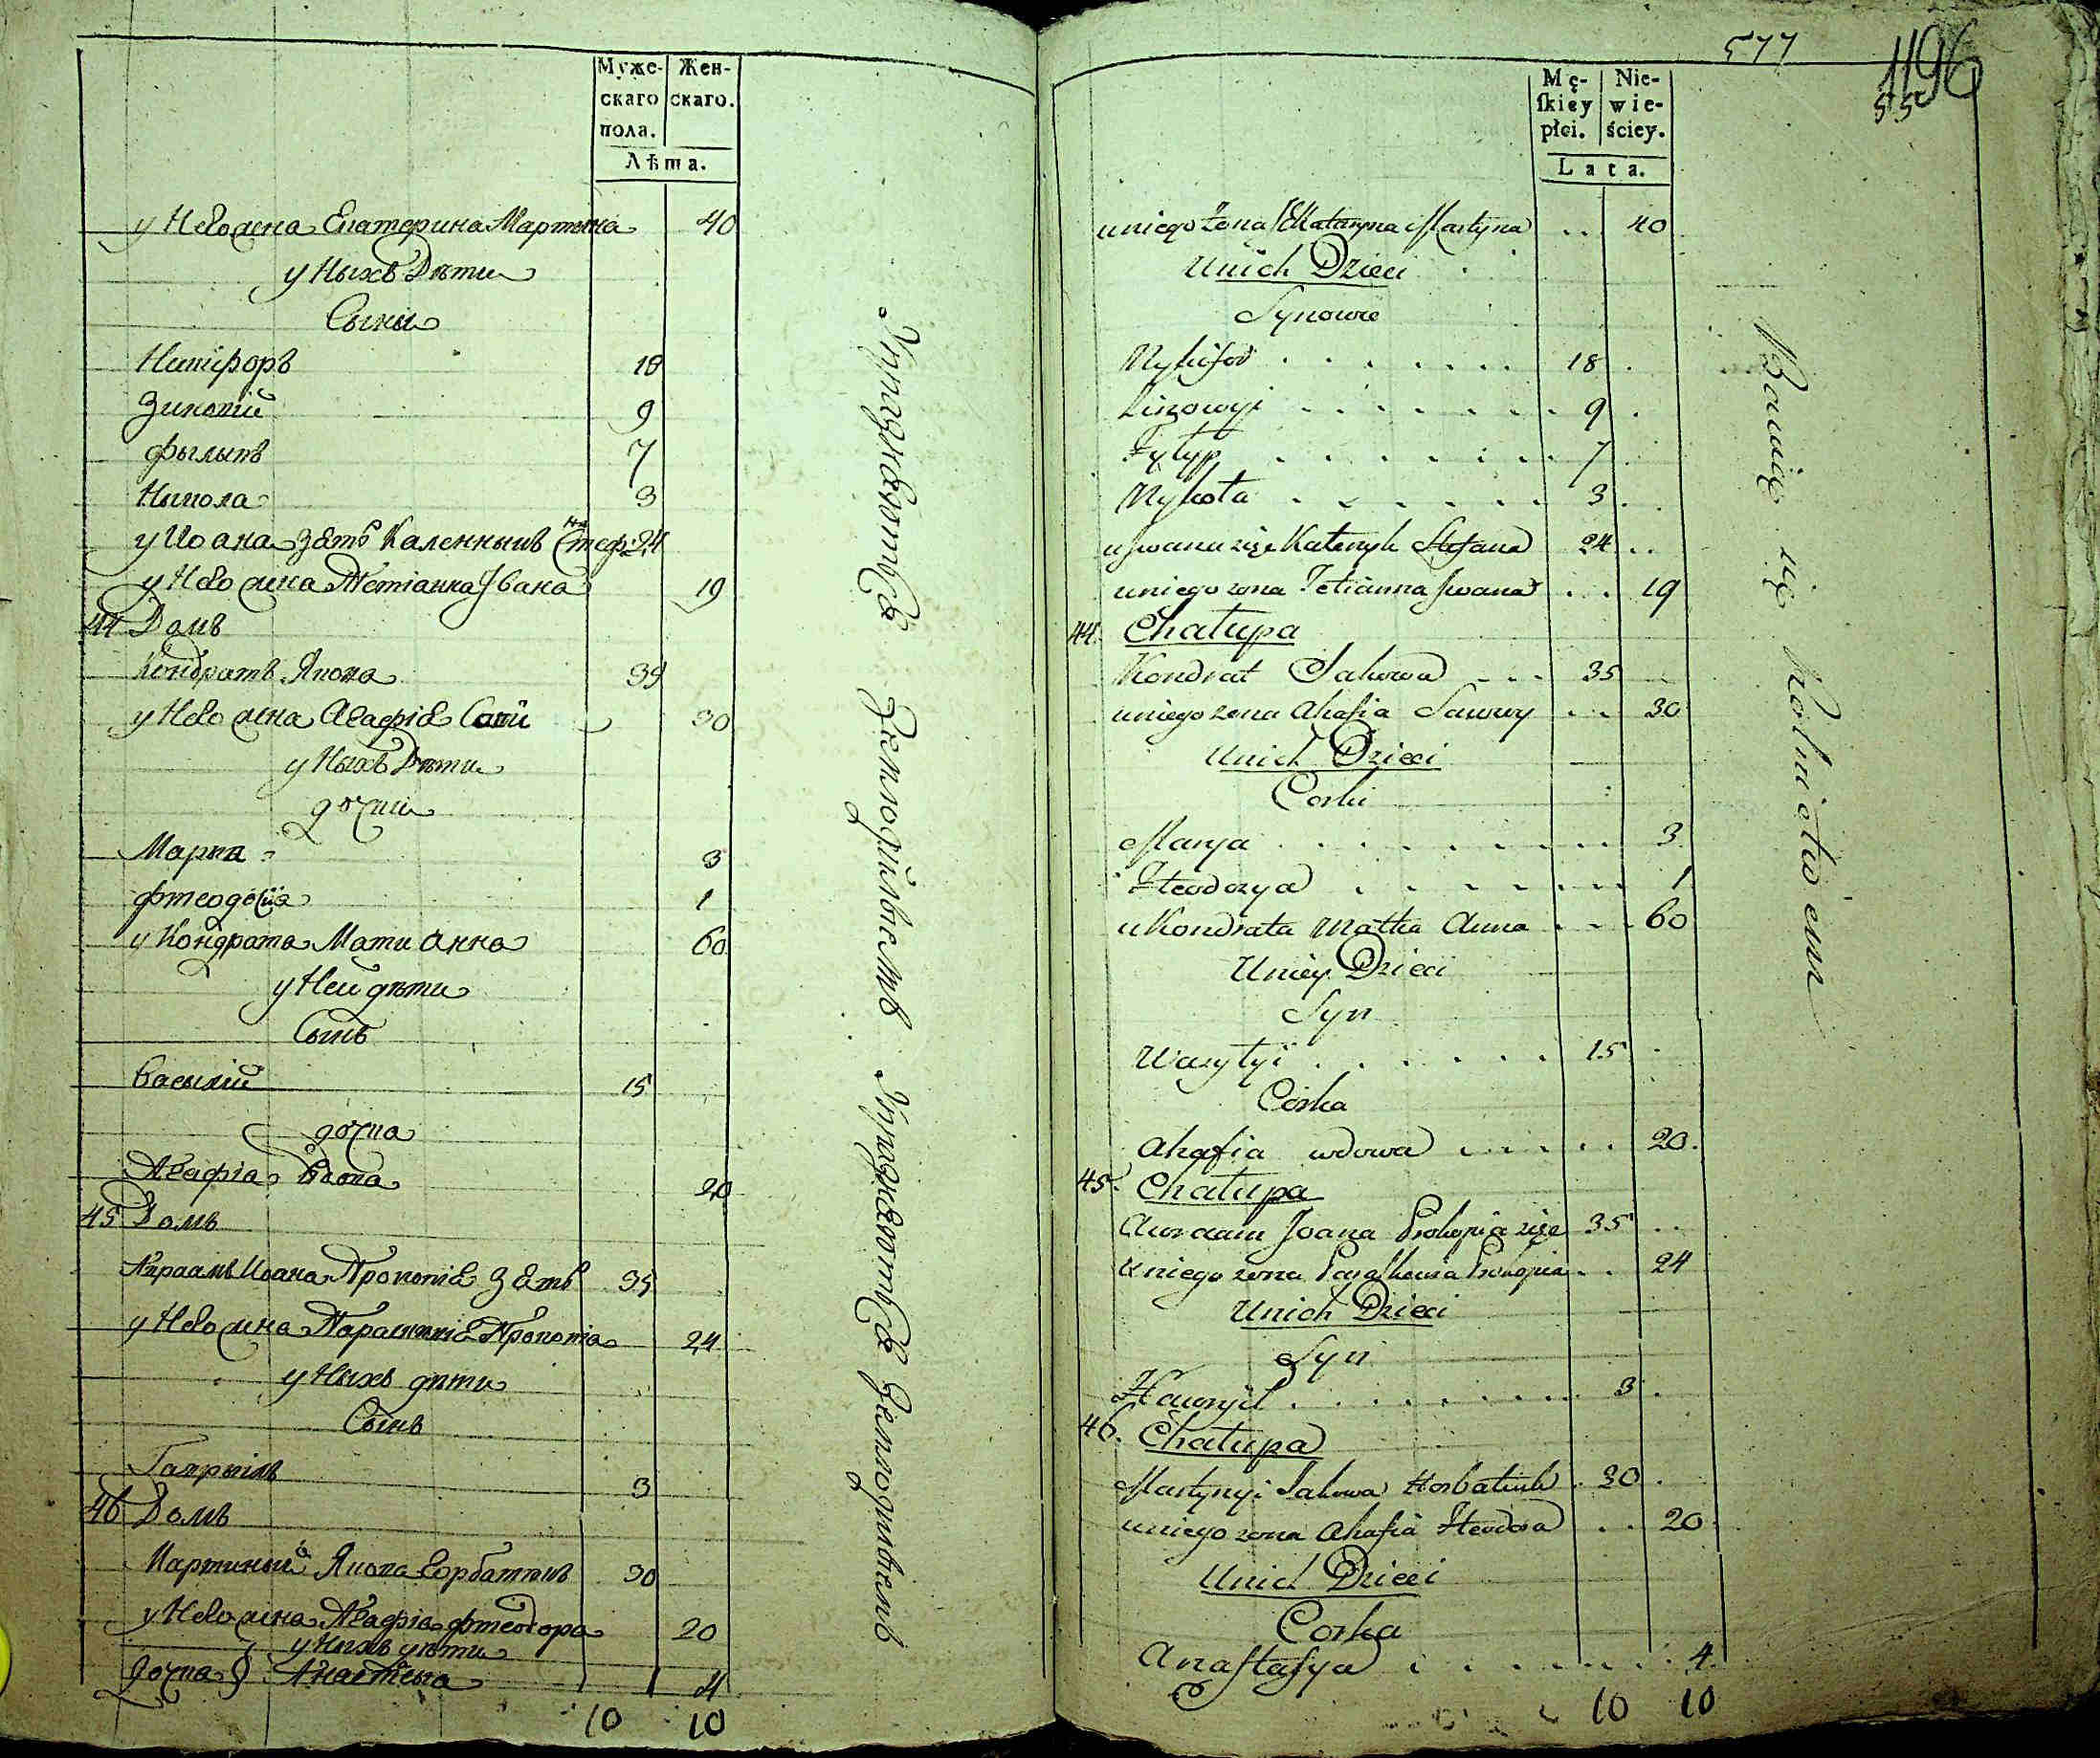 Муже-
скаго
пола.
Жен-
скаго.
Лѣта.
у Него жена Екатерина Мартына 40
у Ныхъ Дѣти
Сыны
Никіфоръ 18
Зиновій 9
Фылыпъ 7
Никола 3
у Иоана Зять Каленикъ Стефана 24
у Него жена Тетіанна Јвана 19
44 Домъ
Кондратъ Якова 35
у Него жена Агафія Савы 30
у Ныхъ Дѣти
дочки
Мария 3
Фтеодосія 1
у Кондрата Мати Анна 60
у Ней дѣти
Сынъ
Василій 15
дочка
Агафіа Вдова 20
45 Домъ
Авраамъ Иоана Прокопія Зять 35
у Него жена Параскевія Прокопіа 24
у Ныхъ дѣти
Сынъ
Гаврыілъ 3
46 Домъ
Мартиный Якова Горбатюкъ 30
у Него жена Агафіа Фтеодора 20
у Ныхъ дѣти
Дочка Анастасыа 4
10 10
Упражняются Земледѣлыемъ
Упражняются Земледѣлыемъ
577
1196
55
Mę-
ſkiey
płci.
Nie-
wie-
ściey.
Lata.
uniego Żona Katarzyna Martyna 40
Unich Dzieci
Synowie
Nykifor 18
Zinowyi 9
Fyłyp 7
Nykoła 3
u Jwana zięć Kałenyk Stefana 24
uniego zona Tetianna Jwana 19
44. Chałupa
Kondrat Jakowa 35
uniego zona Ahafia Sawwy 30
Unich Dzieci
Corki
Marya 3
Fteodozya 1
u Kondrata Matka Anna 60
Uniey Dzieci
Syn
Wasyłyi 15
Córka
Ahafia wdowa 20.
45. Chałupa
Awraam Joana Prokopia zięć 35
Uniego zona Paraſkewia Prokopia 24
Unich Dzieci
Syn
Hawryił 3
46. Chałupa
Martynyi Jakowa Horbatiuk 30
uniego zona Ahafia Fteodora 20
Unich Dzieci
Corka
Anaſtaſya 4
10 10
Bawią się Rolnictwem